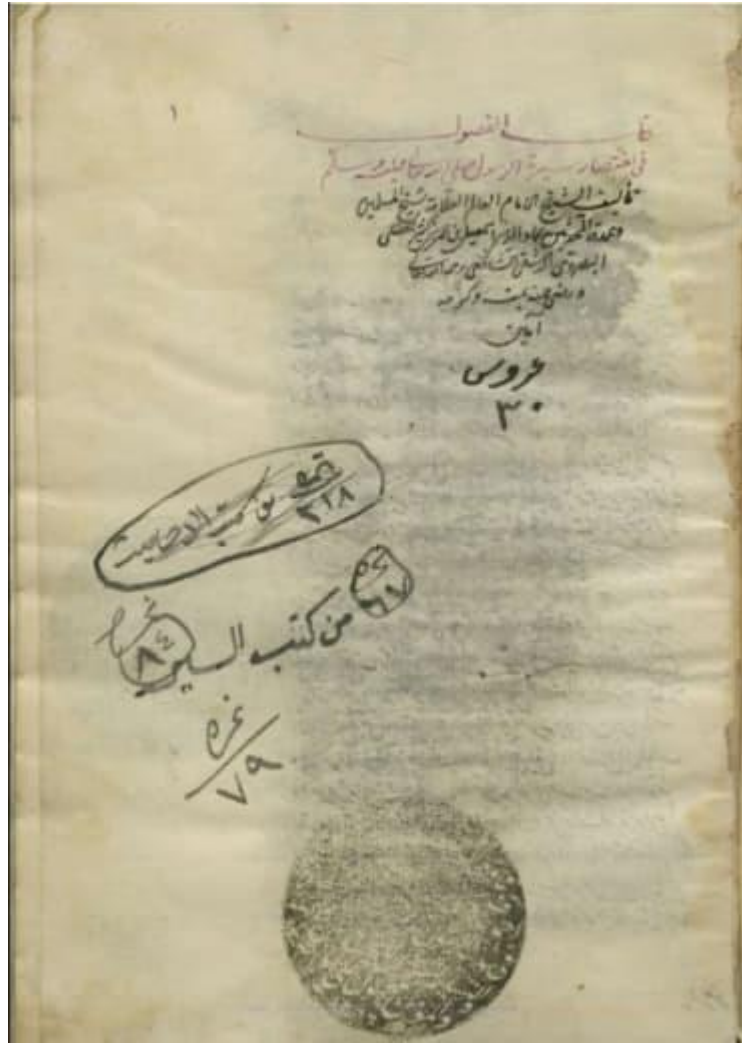 ١
كتاب الفصول
في اختصار سيرة الرسول صلى الله تعالى عليه وسلم
تأليف الشيخ الامام العالم العلامة شيخ المسلمين
وعمدة المحدثين عماد الدين اسمعيل بن كثير
البصروي الدمشقي الشافعي رحمه الله تعالى
ورضي عنه بمنه وكرمه
آمين
عروسي
٣٠
نمرة ٢١٨ من كتب
نمرة ٦٧ من كتب السير نمرة ٨٤
نمرة
٧٩